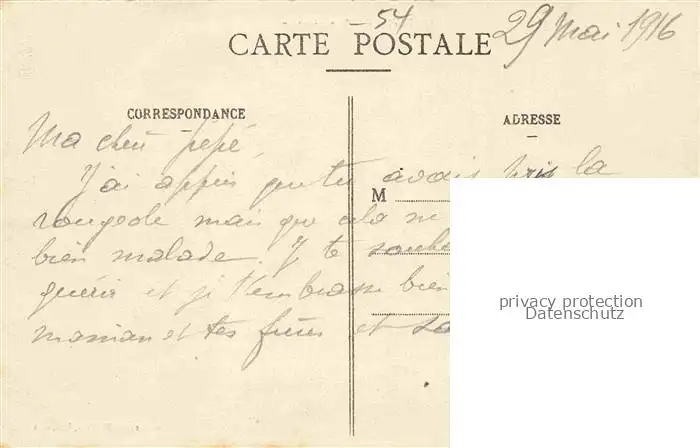 54
29 Mai 1916
CARTE POSTALE
CORRESPONDANCE
ADRESSE
M
Ma cheri pépé,
J'ai appris que tu avais pris la
rougeole mais que cela ne
bien malade. J te souh
guérir et je t'embrasse bien
maman et tes frères et
privacy protection
Datenschutz